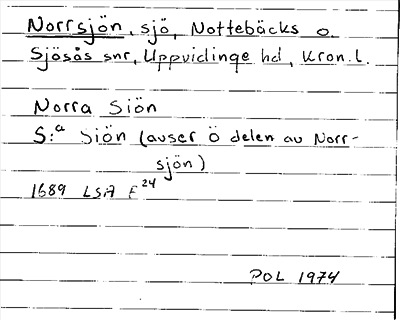 Norrsjön, sjö, Nottebäcks o.
Sjösås snr, Uppvidinge hd, Kron. l.
Norra Siön
S:a Siön (avser ö delen av Norr-
sjön)
1689 LSA E24
POL 1974